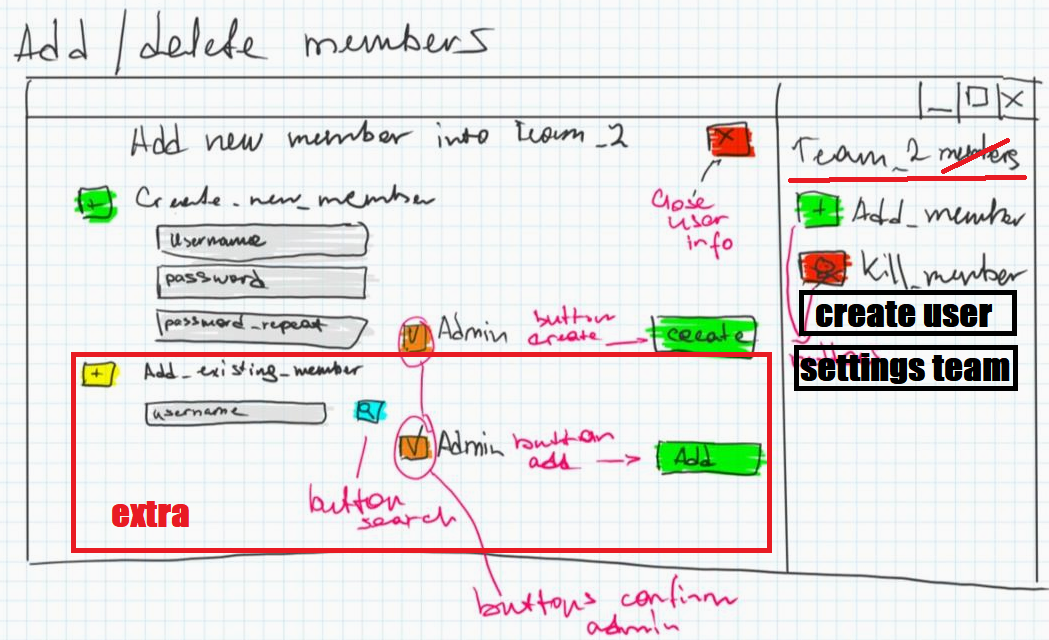 Add/delete members
Add new member into Team_2
X
Close
user
info
+ Create_new_member
Username
password
password_repeat
V Admin
button
create
create
+ Add_existing_member
username
V Admin
button
add
Add
button
search
extra
buttons confirm
admin
_ □ X
Team_2 members
+ Add_member
Kill_member
create user
settings team